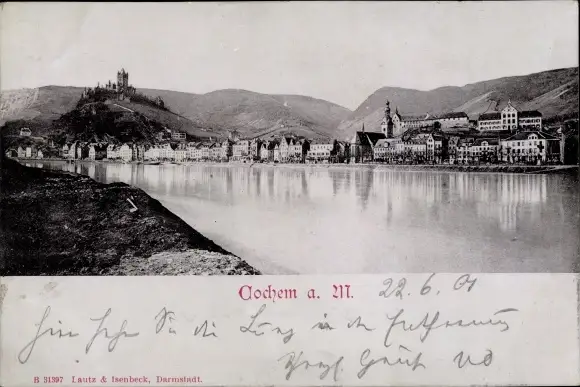 Cochem a. M. 22.6.01
Hier sehn Sie die Burg in der Entfernung
Herzl Gruß
B 31397 Lautz & Isenbeck, Darmstadt.